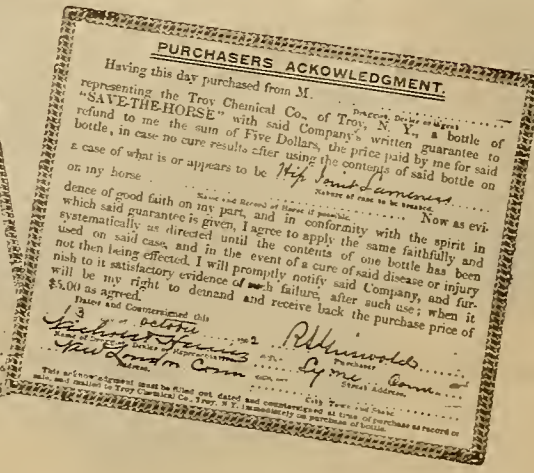 PURCHASERS ACKOWLEDGMENT.
Having this day purchased from M.
Druggist, Dealer or Agent
representing the Troy Chemical Co., of Troy, N. Y., a bottle of
"SAVE-THE-HORSE" with said Company's written guarantee to
refund to me the sum of Five Dollars, the price paid by me for said
bottle, in case no cure results after using the contents of said bottle on
a case of what is or appears to be Hip Joint Lameness
Nature of case to be treated.
on my horse Now as evi-
Name and Record of Horse if possible.
dence of good faith on my part, and in conformity with the spirit in
which said guarantee is given, I agree to apply the same faithfully and
systematically as directed until the contents of one bottle has been
used on said case, and in the event of a cure of said disease or injury
not then being effected. I will promptly notify said Company, and fur-
nish to it satisfactory evidence of such failure, after such use; when it
will be my right to demand and receive back the purchase price of
$5.00 as agreed.
Dated and Countersigned this
3 October 2 Griswold
Name of Druggist, Dealer or Representative Purchaser
New London Conn Lyme Conn
Address. Street Address.
City Town and State
This acknowledgment must be filled out dated and countersigned at time of purchase as record of
sale, and mailed to Troy Chemical Co., Troy, N. Y. immediately on purchase of bottle.